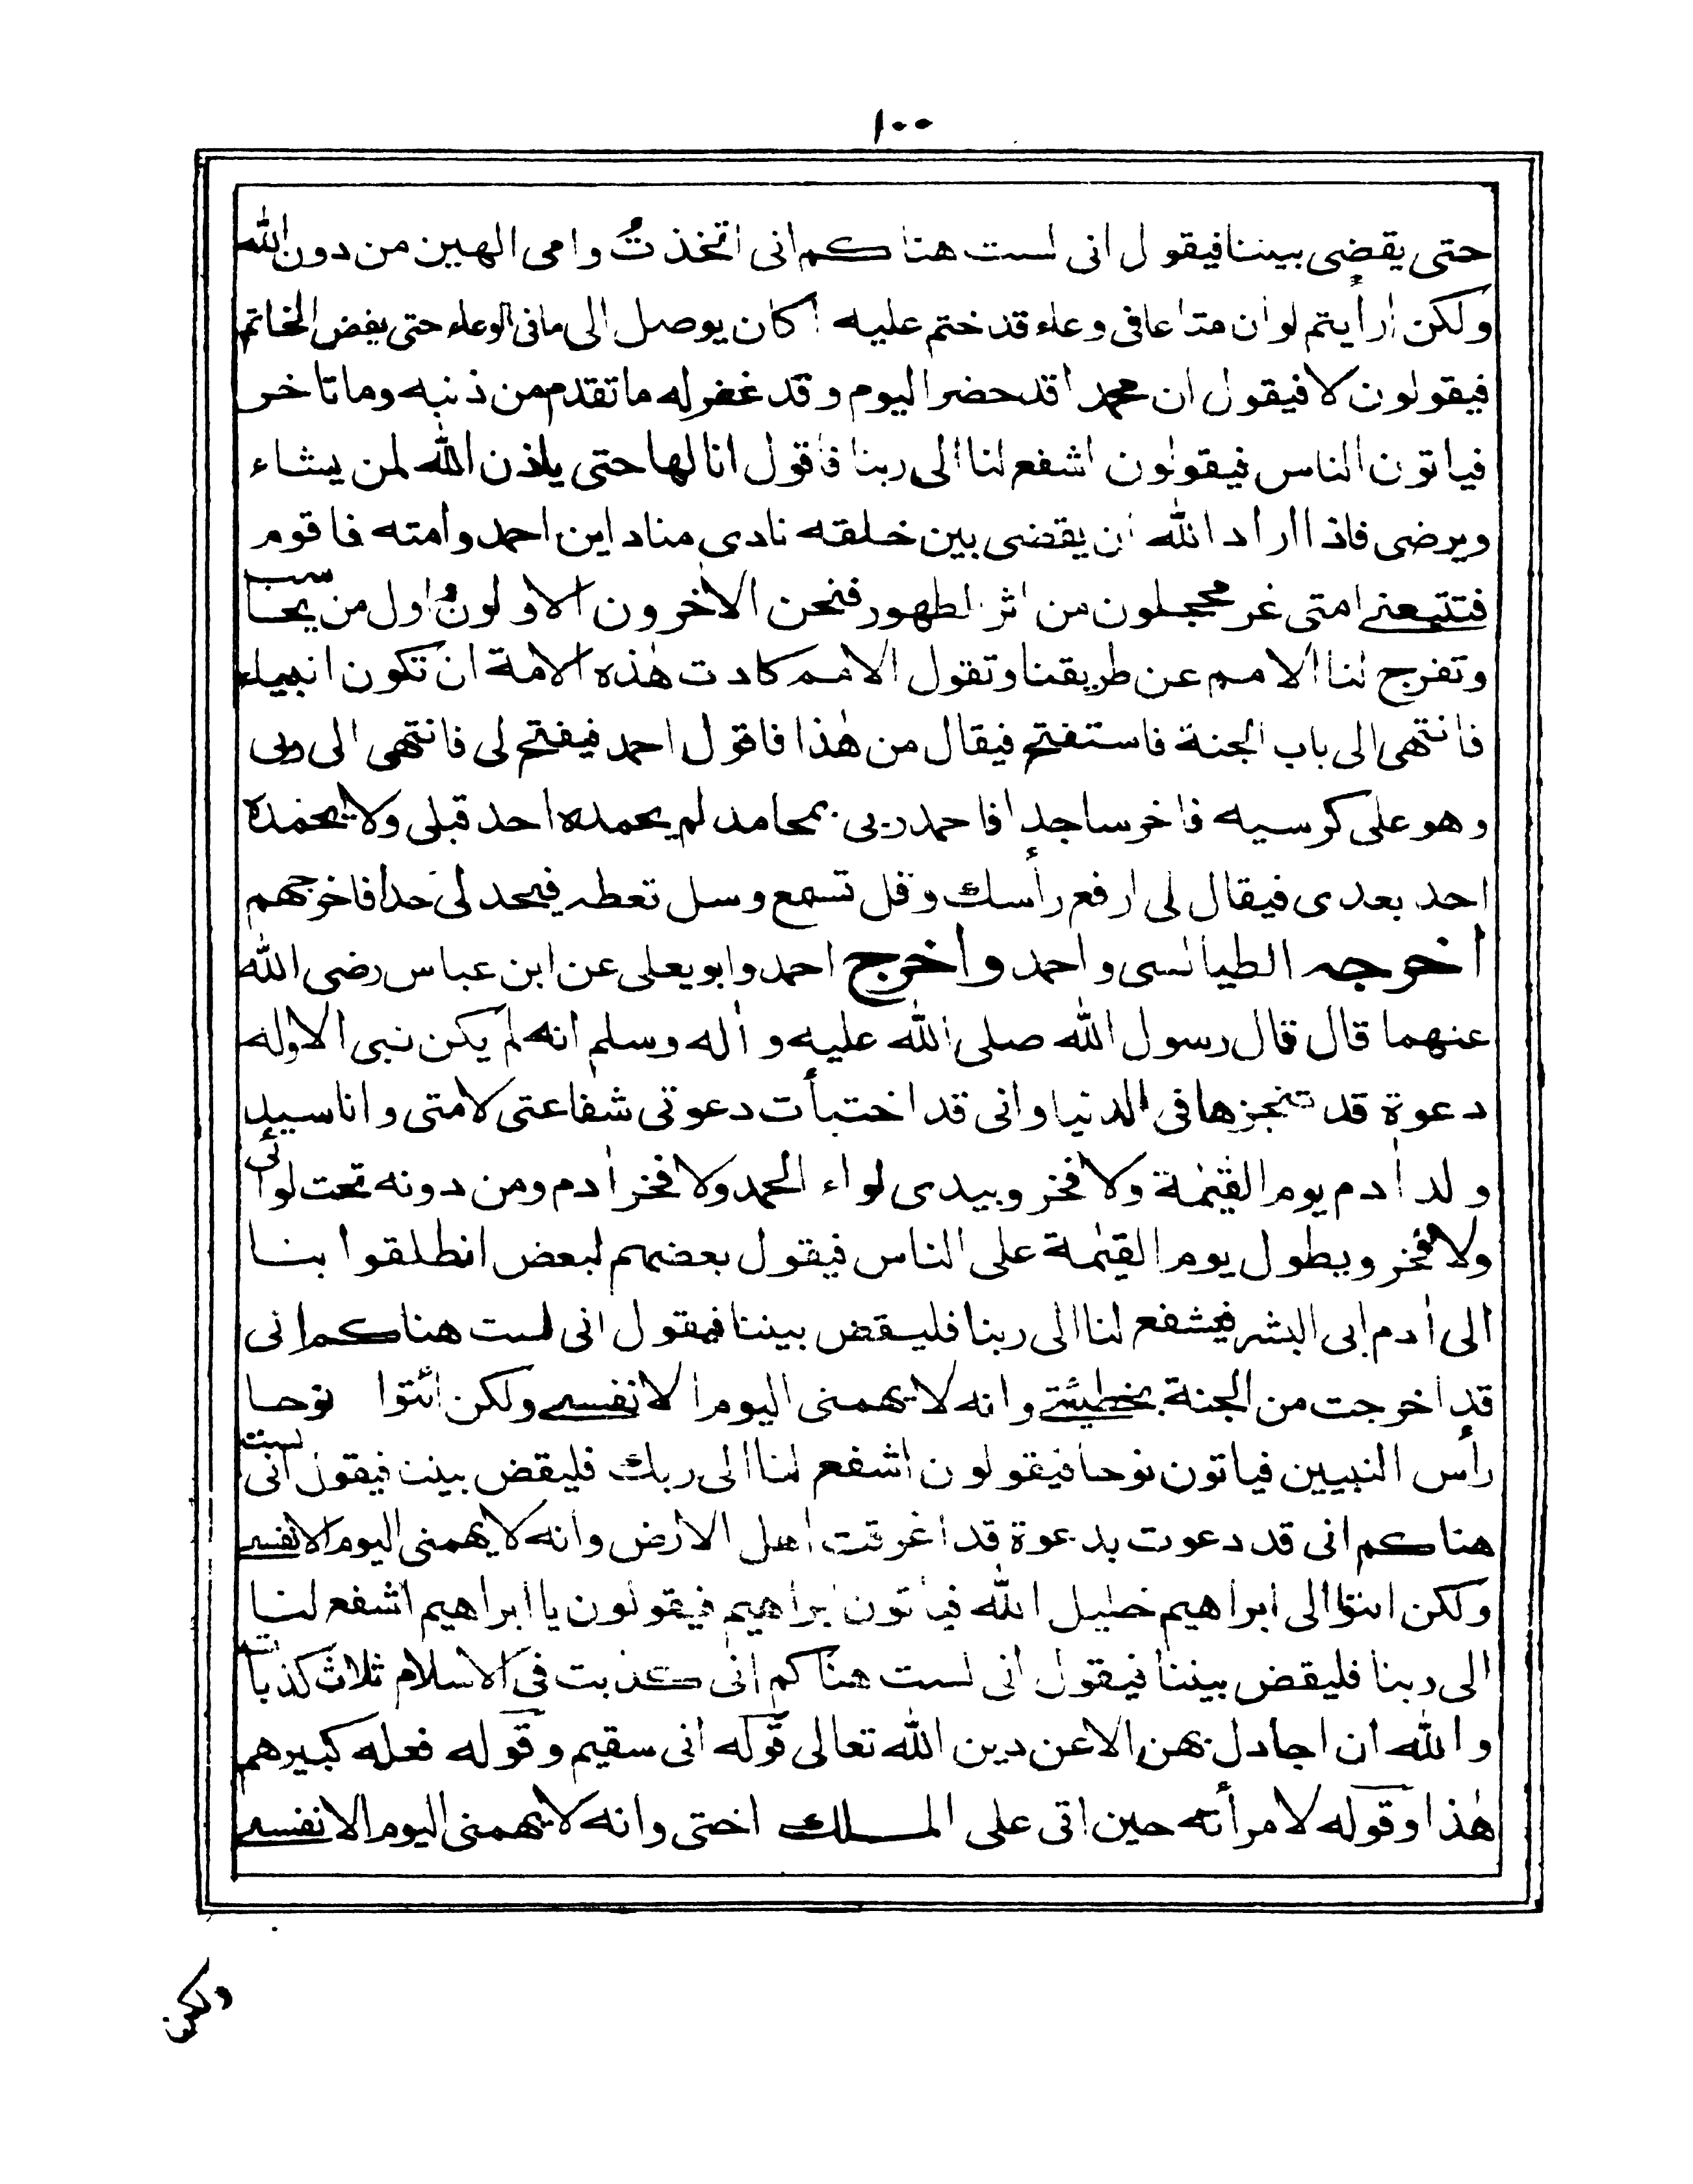 ١٠٠
حتى يقضى بيننا فيقول انى لست هناكم انى اتخذتُ وامى الهين من دون الله
ولكن ارأيتم لوان متاعا فى وعاء قد ختم عليه أكان يوصل الى ما فى الوعاء حتى يفض الخاتم
فيقولون لا فيقول ان محمدا قد حضر اليوم وقد غفر له ما تقدم من ذنبه وما تاخر
فياتون الناس فيقولون اشفع لنا الى ربنا فأقول انا لها حتى ياذن الله لمن يشاء
ويرضى فاذا اراد الله ان يقضى بين خلقه نادى مناد اين احمد وامته فاقوم
فتتبعنى امتى غر محجلون من اثر الطهور فنحن الاخرون الاولون اول من يحاسب
وتفرج لنا الامم عن طريقنا وتقول الامم كادت هٰذه الامة ان تكون انبياء
فانتهى الى باب الجنة فاستفتح فيقال من هٰذا فاقول احمد فيفتح لى فانتهى الى ربى
وهو على كرسيه فاخر ساجدا فاحمد ربى بمحامد لم يحمده احد قبلى ولا يحمده
احد بعدى فيقال لى ارفع رأسك وقل تسمع وسل تعطه فيحد لى حدا فاخرجهم
اخرجه الطيالسى واحمد واخرج احمد وابويعلى عن ابن عباس رضى الله
عنهما قال قال رسول الله صلى الله عليه وأله وسلم انه لم يكن نبى الا وله
دعوة قد تنجزها فى الدنيا وانى قد اختبأت دعوتى شفاعتى لامتى وانا سيد
ولد أدم يوم القيٰمة ولا فخر وبيدى لواء الحمد ولا فخر أدم ومن دونه تحت لوائى
ولا فخر ويطول يوم القيٰمة على الناس فيقول بعضهم لبعض انطلقوا بنا
الى أدم ابى البشر فيشفع لنا الى ربنا فليقض بيننا فيقول انى لست هناكم انى
قد اخرجت من الجنة بخطيئتى وانه لا يهمنى اليوم الا نفسى ولكن ائتوا نوحا
رأس النبيين فياتون نوحا فيقولون اشفع لنا الى ربك فليقض بيننا فيقول انى لست
هناكم انى قد دعوت بدعوة قد اغرقت اهل الارض وانه لا يهمنى اليوم الا نفسى
ولكن ائتوا الى ابراهيم خليل الله فياتون ابراهيم فيقولون يا ابراهيم اشفع لنا
الى ربنا فليقض بيننا فيقول انى لست هناكم انى كذبت فى الاسلام ثلاث كذبات
والله ان اجادل بهن الا عن دين الله تعالى قوله انى سقيم وقوله فعله كبيرهم
هٰذا وقوله لامرأته حين اتى على الملك اختى وانه لا يهمنى اليوم الا نفسى
ولكن